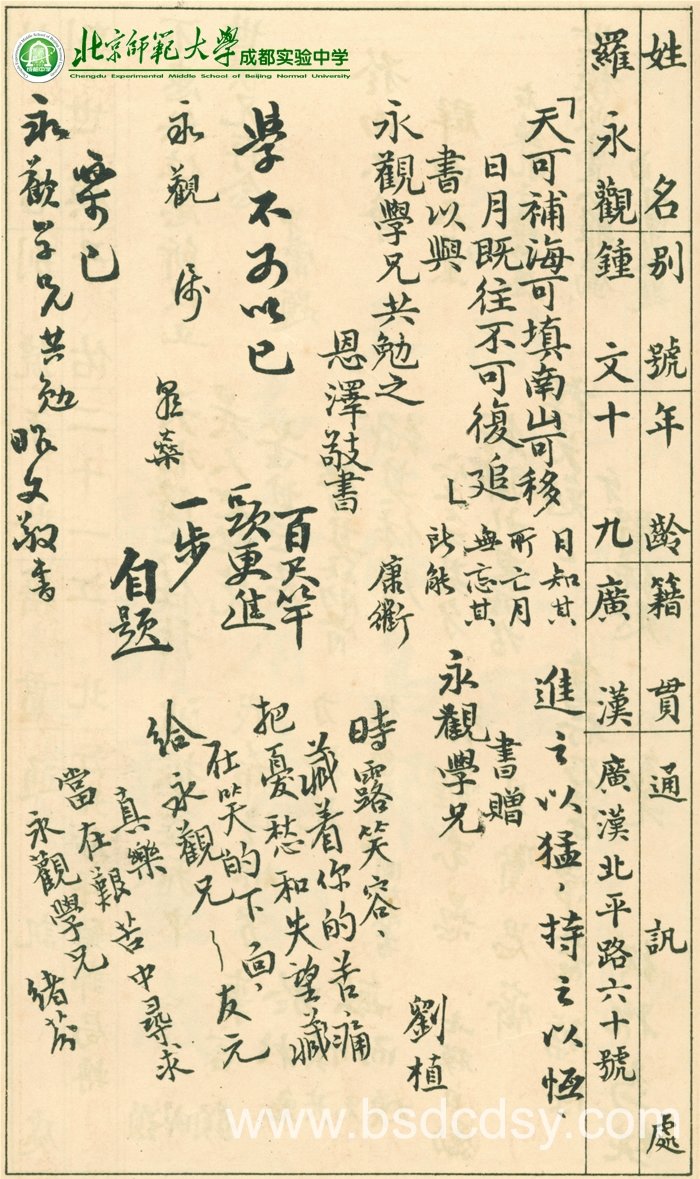 北京師範大學成都实验中学
Chengdu Experimental Middle School of Beijing Normal University
成都中学
姓名
别號
年齡
籍貫
通訊處
羅永觀
鍾文
十九
廣漢
廣漢北平路六十號
「天可補海可填南山可移
日月既往不可復追」
書以與
永觀學兄共勉之
恩澤敬書
日知其
所亡月
無忘其
所能
康衢
進之以猛，持之以恆．
書贈
永觀學兄
劉植
學不可以已
永觀
百尺竿
頭更進
一步
自題
時露笑容、
藏着你的苦痛
把憂愁和失望藏
在笑的下面，
給永觀兄～友元
真樂
當在艱苦中尋求
永觀學兄
緒芬
永歡学兄共勉
昭文敬書
www.bsdcdsy.com